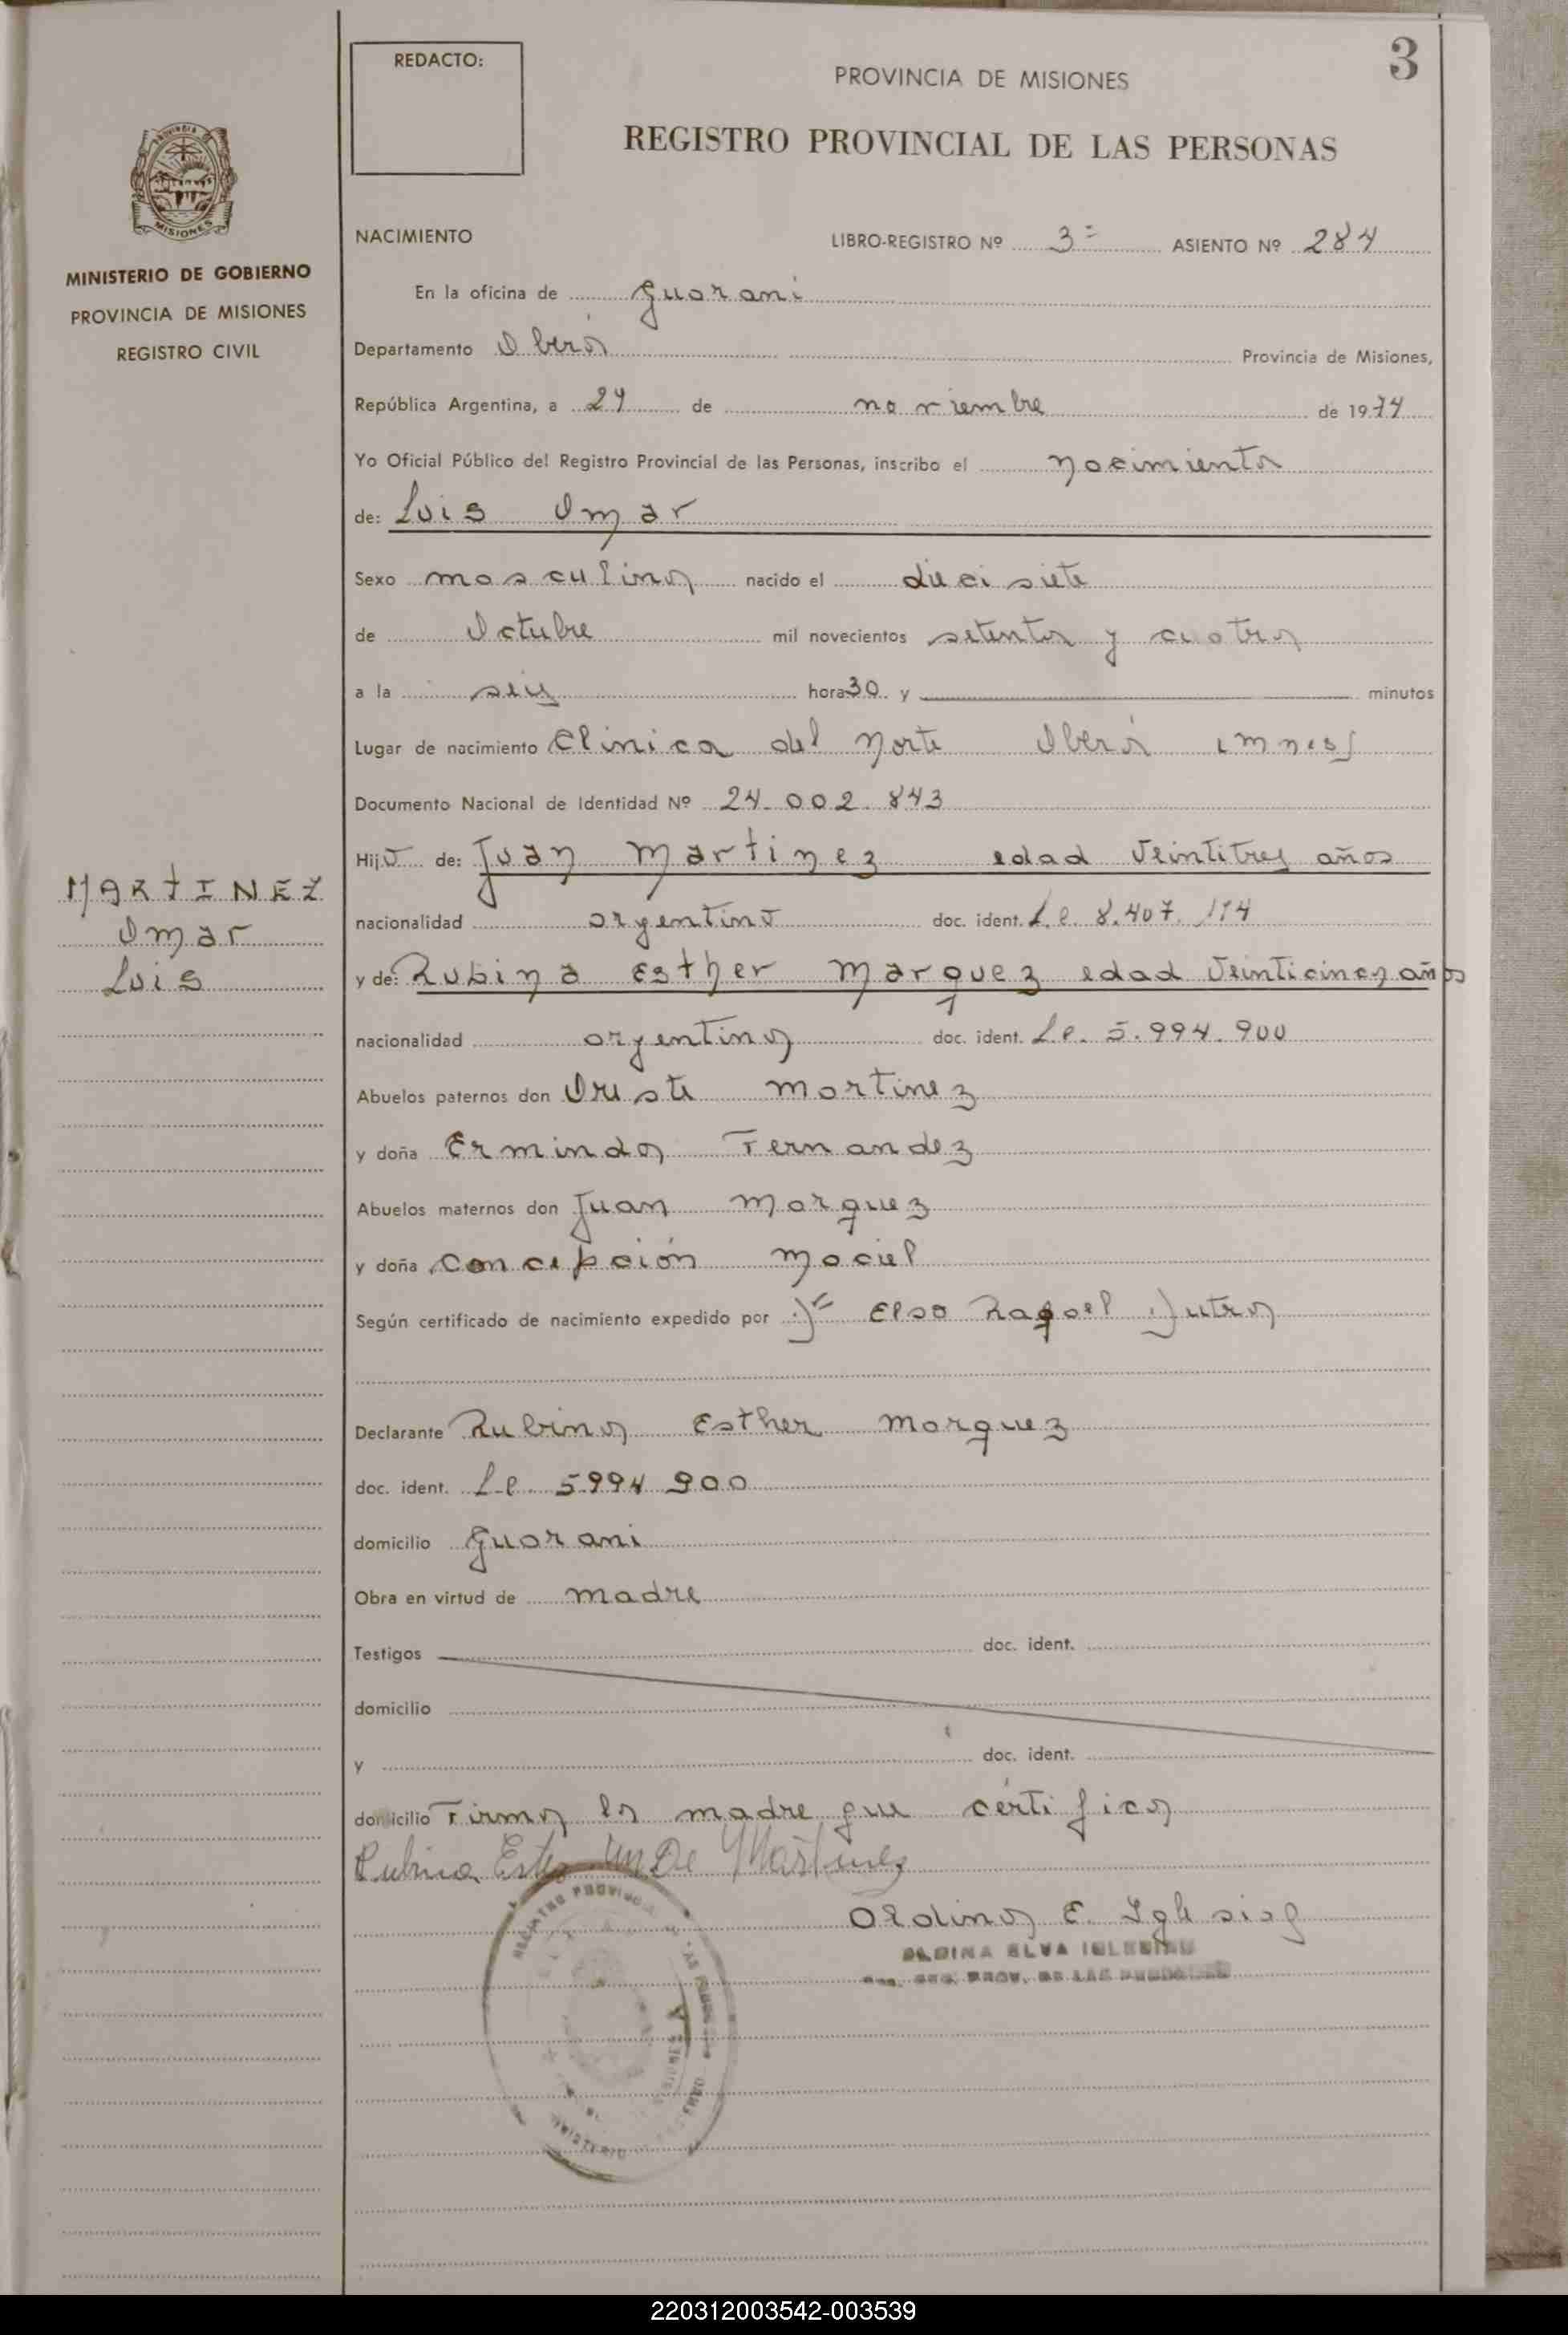 REDACTO:
3
PROVINCIA DE MISIONES
REGISTRO PROVINCIAL DE LAS PERSONAS
MISIONES
MINISTERIO DE GOBIERNO
PROVINCIA DE MISIONES
REGISTRO CIVIL
NACIMIENTO LIBRO-REGISTRO Nº 3º ASIENTO Nº 284
En la oficina de Guarani
Departamento Oberá Provincia de Misiones,
República Argentina, a 24 de noviembre de 1974
Yo Oficial Público del Registro Provincial de las Personas, inscribo el nacimiento
de: Luis Omar
Sexo masculino nacido el dieci siete
de Octubre mil novecientos setenta y cuatro
a la seis hora 30 y minutos
Lugar de nacimiento Clinica del Norte Oberá
Documento Nacional de Identidad Nº 24.002.843
Hijo de: Juan Martinez edad Veintitres años
nacionalidad argentino doc. ident. L.e. 8.407.114
y de: Rubina Esther Marquez edad Veinticinco años
nacionalidad argentina doc. ident. L.e. 5.994.900
Abuelos paternos don Oreste Martinez
y doña Erminda Fernandez
Abuelos maternos don Juan Marquez
y doña Concepción Maciel
Según certificado de nacimiento expedido por Dra Elsa Raquel Dutra
Declarante Rubina Esther Marquez
doc. ident. L.e. 5994.900
domicilio Guarani
Obra en virtud de madre
Testigos doc. ident.
domicilio
y doc. ident.
domicilio Firma la madre que certifico
Rubina Ester M De Martinez
Oldina E. Iglesias
OLDINA ELVA IGLESIAS
REG. PROV. DE LAS PERSONAS
MARTINEZ
Omar
Luis
220312003542-003539